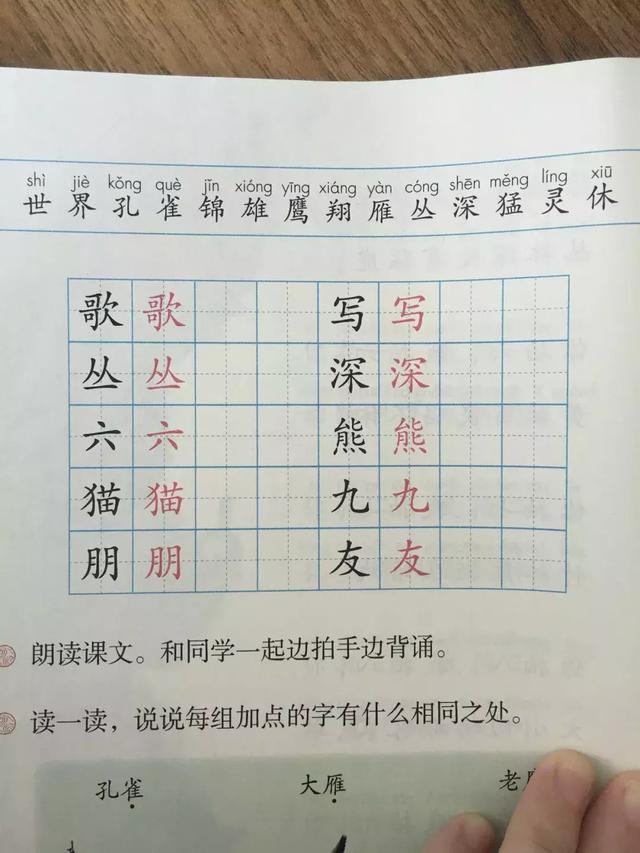 shì jiè kǒng què jǐn xióng yīng xiáng yàn cóng shēn měng líng xiū
世 界 孔 雀 锦 雄 鹰 翔 雁 丛 深 猛 灵 休
歌 歌 写 写
丛 丛 深 深
六 六 熊 熊
猫 猫 九 九
朋 朋 友 友
朗读课文。和同学一起边拍手边背诵。
读一读，说说每组加点的字有什么相同之处。
孔雀 大雁 老